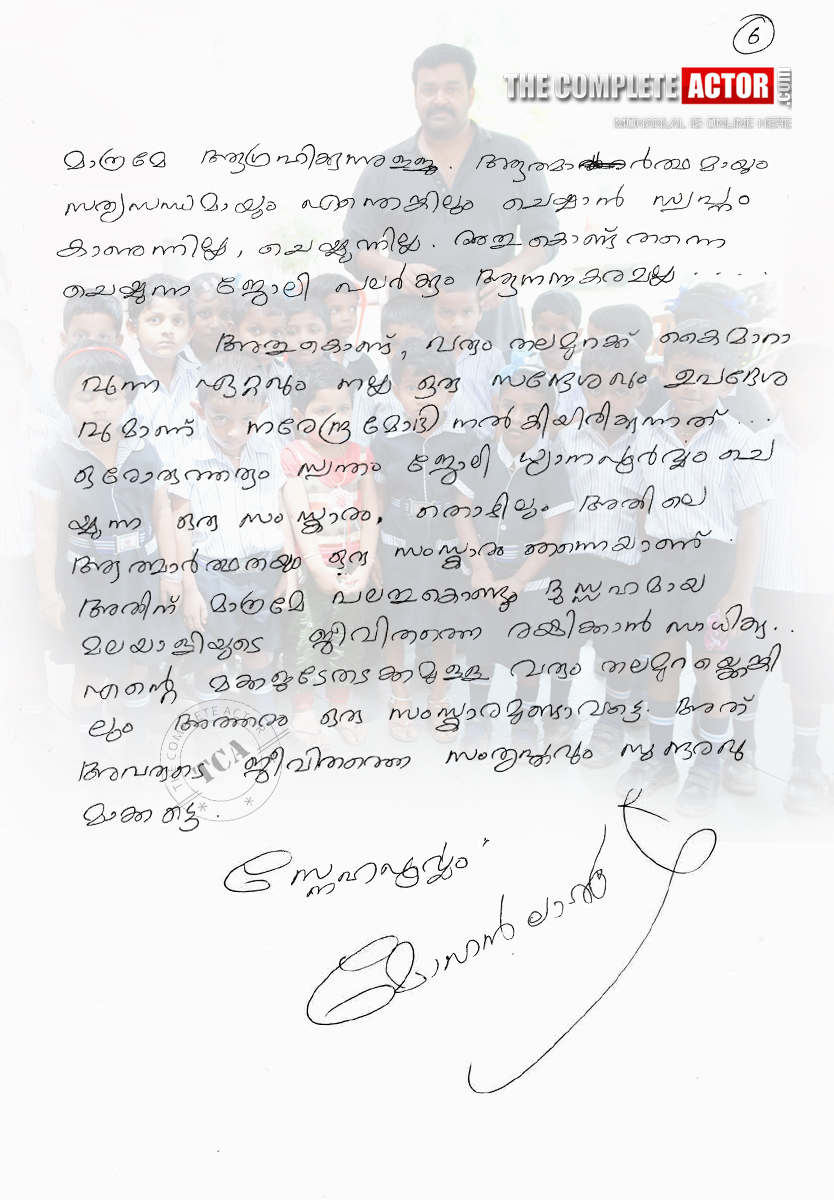 6
THE COMPLETE ACTOR .com
MOHANLAL IS ONLINE HERE
മാത്രമേ ആഗ്രഹിക്കുന്നുള്ളൂ. ആത്മാർത്ഥമായും
സത്യസന്ധമായും എന്തെങ്കിലും ചെയ്യാൻ സ്വപ്നം
കാണുന്നില്ല, ചെയ്യുന്നില്ല. അതുകൊണ്ടുതന്നെ
ചെയ്യുന്ന ജോലി പലർക്കും ആനന്ദകരമല്ല ....
അതുകൊണ്ട്, വരും തലമുറക്ക് കൈമാറാ
വുന്ന ഏറ്റവും നല്ല ഒരു സന്ദേശവും ഉപദേശ
വുമാണ് നരേന്ദ്ര മോദി നൽകിയിരിക്കുന്നത് ...
ഒരോരുത്തരും സ്വന്തം ജോലി ധ്യാനപൂർവ്വം ചെ
യ്യുന്ന ഒരു സംസ്കാരം. തൊഴിലും അതിലെ
ആത്മാർത്ഥതയും ഒരു സംസ്കാരം തന്നെയാണ് .
അതിന് മാത്രമേ പലതുകൊണ്ടും ദുസ്സഹമായ
മലയാളിയുടെ ജീവിതത്തെ രക്ഷിക്കാൻ സാധിക്കൂ..
എന്റെ മക്കളുടേതടക്കമുള്ള വരും തലമുറയ്ക്കെങ്കി
ലും അത്തരം ഒരു സംസ്കാരമുണ്ടാവട്ടെ. അത്
അവരുടെ ജീവിതത്തെ സംതൃപ്തവും സുന്ദരവു
മാക്കട്ടെ.
സ്നേഹപൂർവ്വം
മോഹൻലാൽ
THE COMPLETE ACTOR
TCA